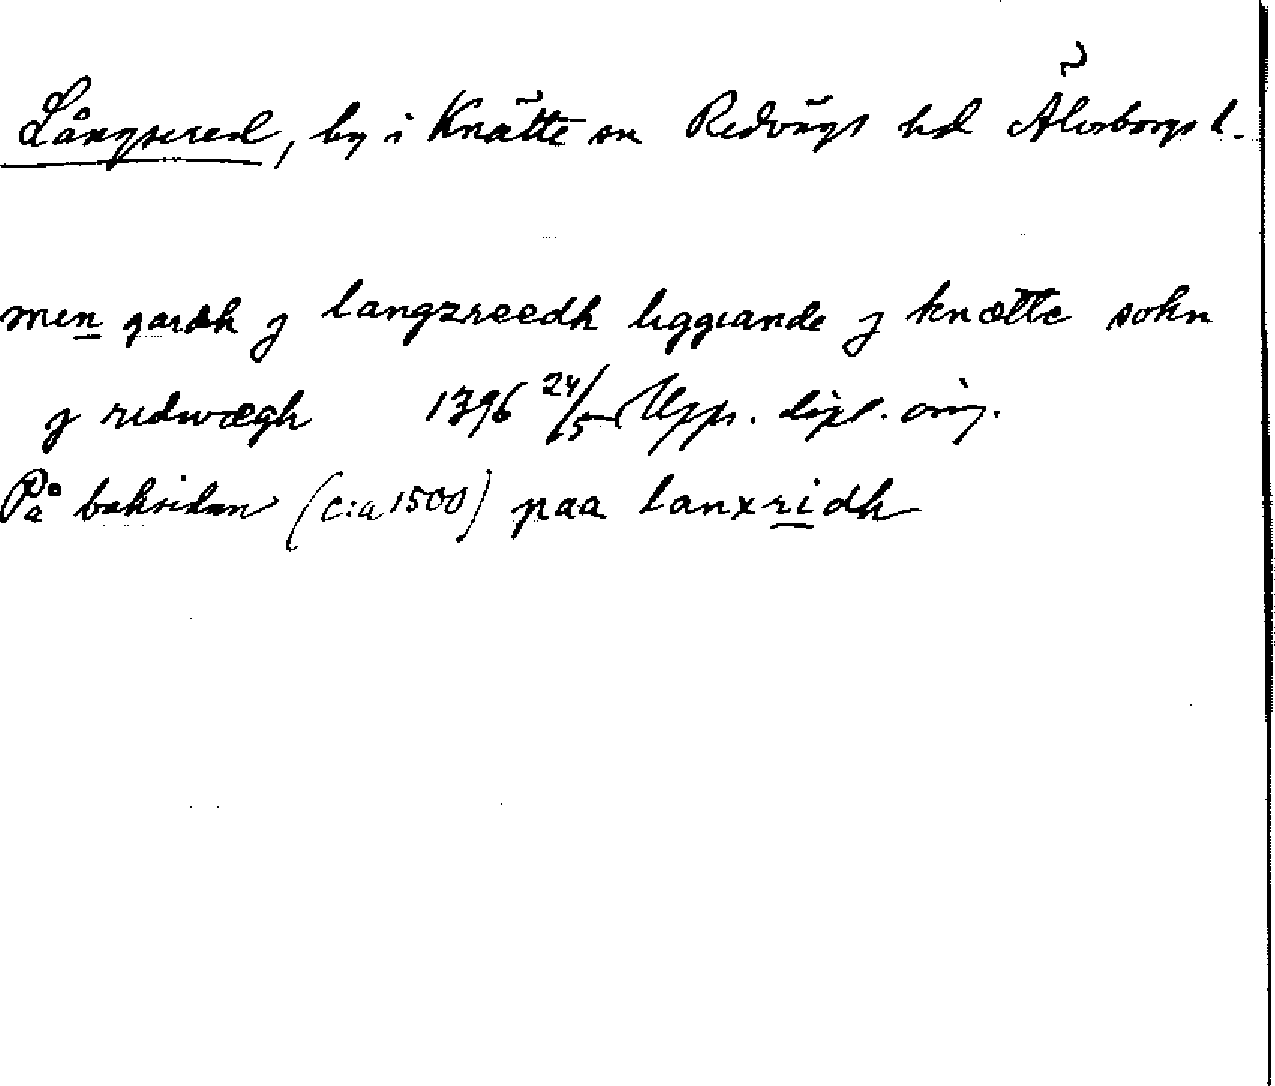 Långsered, by i Knätte sn Redvägs hd Älvsborgs l.
men gardh j langzreedh liggiande j knætte sokn
j redwægh 1396 24/5 Upps. dipl. orig.
På baksidan (c:a 1500) paa lanxridh